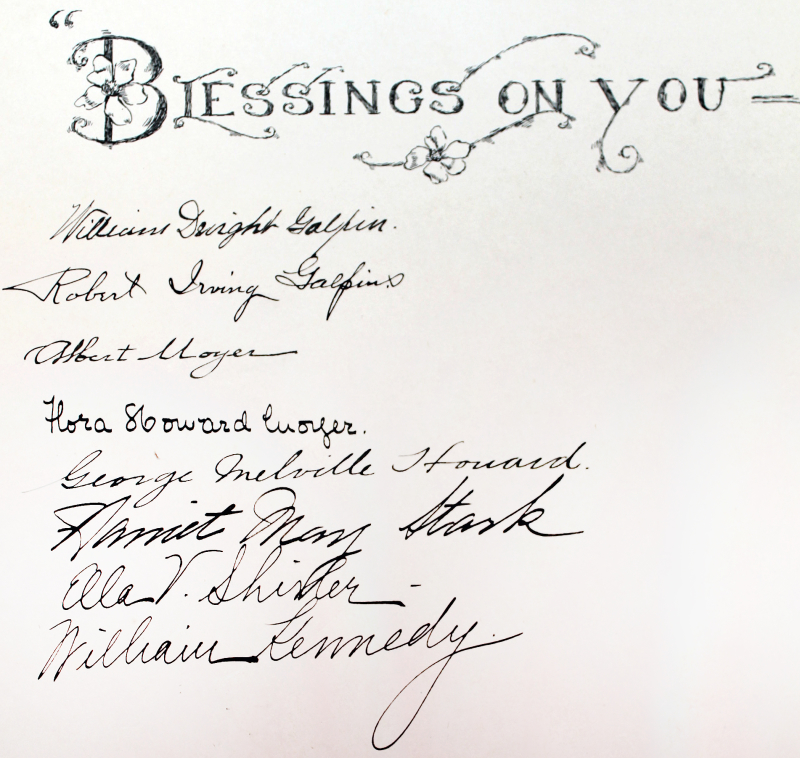 “BLESSINGS ON YOU —
William Dwight Galpin.
Robert Irving Galpin
Albert Moyer
Flora Howard Moyer.
George Melville Howard.
Harriet May Stark
V.
William Kennedy.